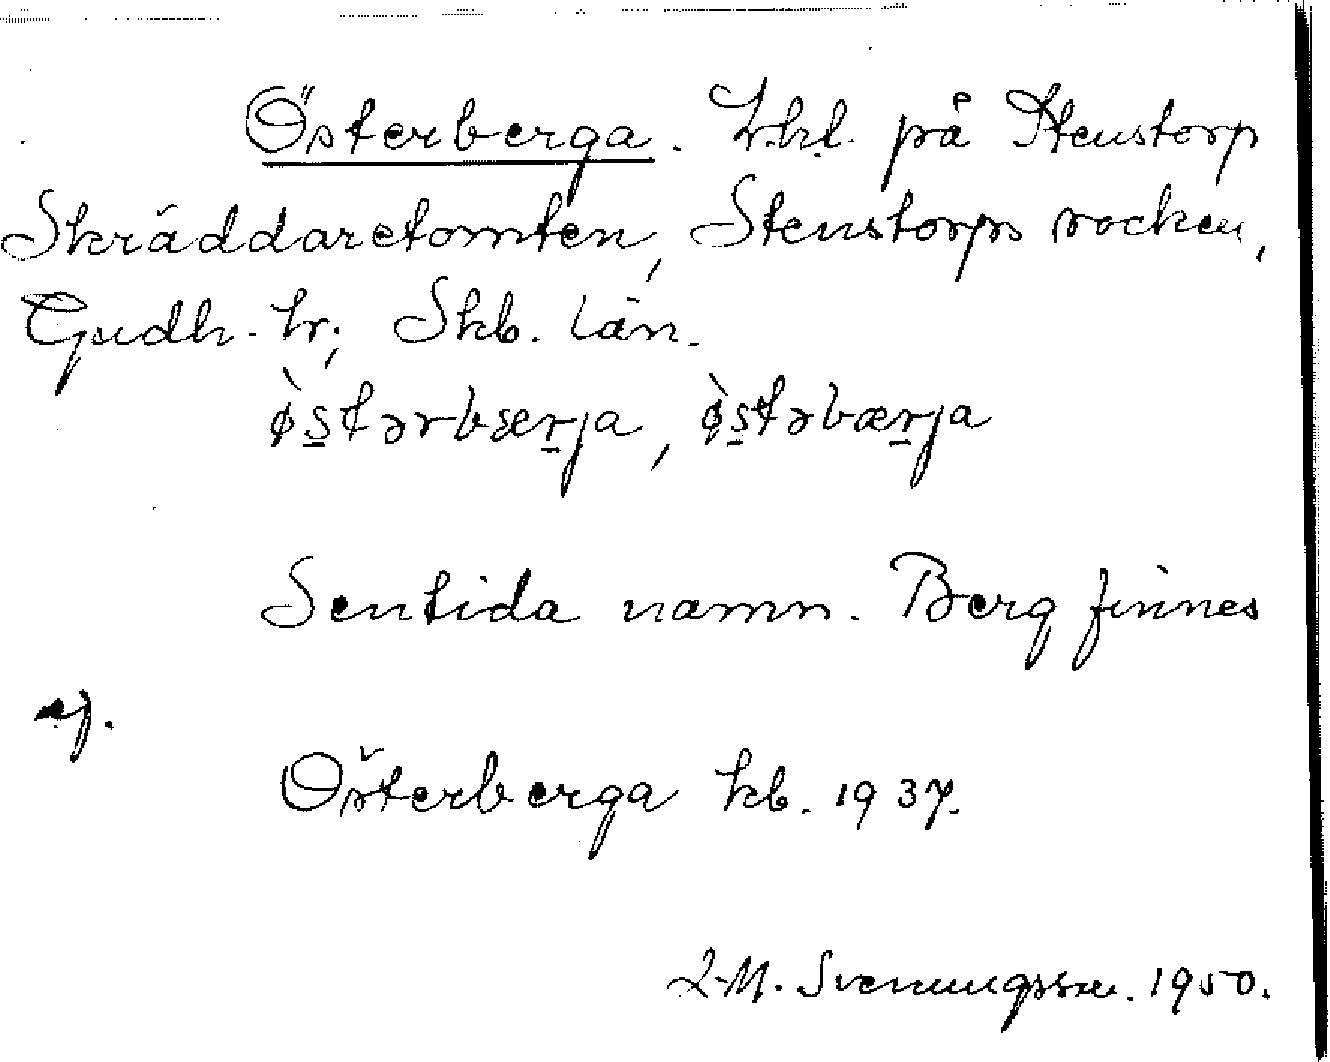 Österberga. Lht. på Stenstorp
Skräddaretomten, Stenstorps socken,
Gudh. hr; Skb. län.
ø̀s̱tərbæṟja, ø̀s̱təbæṟja
Sentida namn. Berg finnes
ej.
Österberga kb. 1937.
L-M. Svenungsson. 1950.